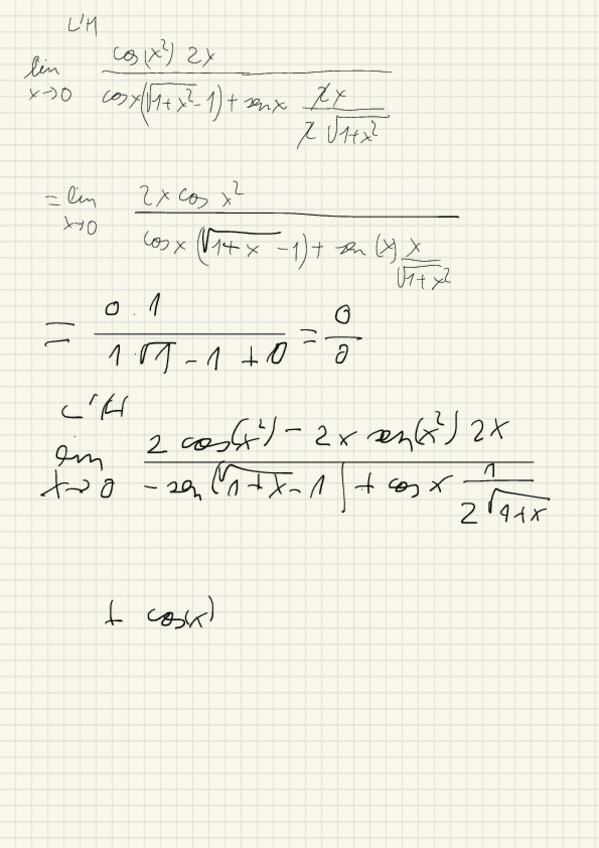 L'H
lim x→0 cos(x²) 2x / cosx(√1+x² -1) + senx 2x / 2 √1+x²
= lim x→0 2x cos x² / cosx (√1+x -1) + sen(x) x / √1+x²
= 0 . 1 / 1.√1 - 1 + 0 = 0 / 0
L'H
lim x→0 2 cos(x²) - 2x sen(x²) 2x / - sen (√1+x -1) + cos x 1 / 2 √1+x
+ cos(x)